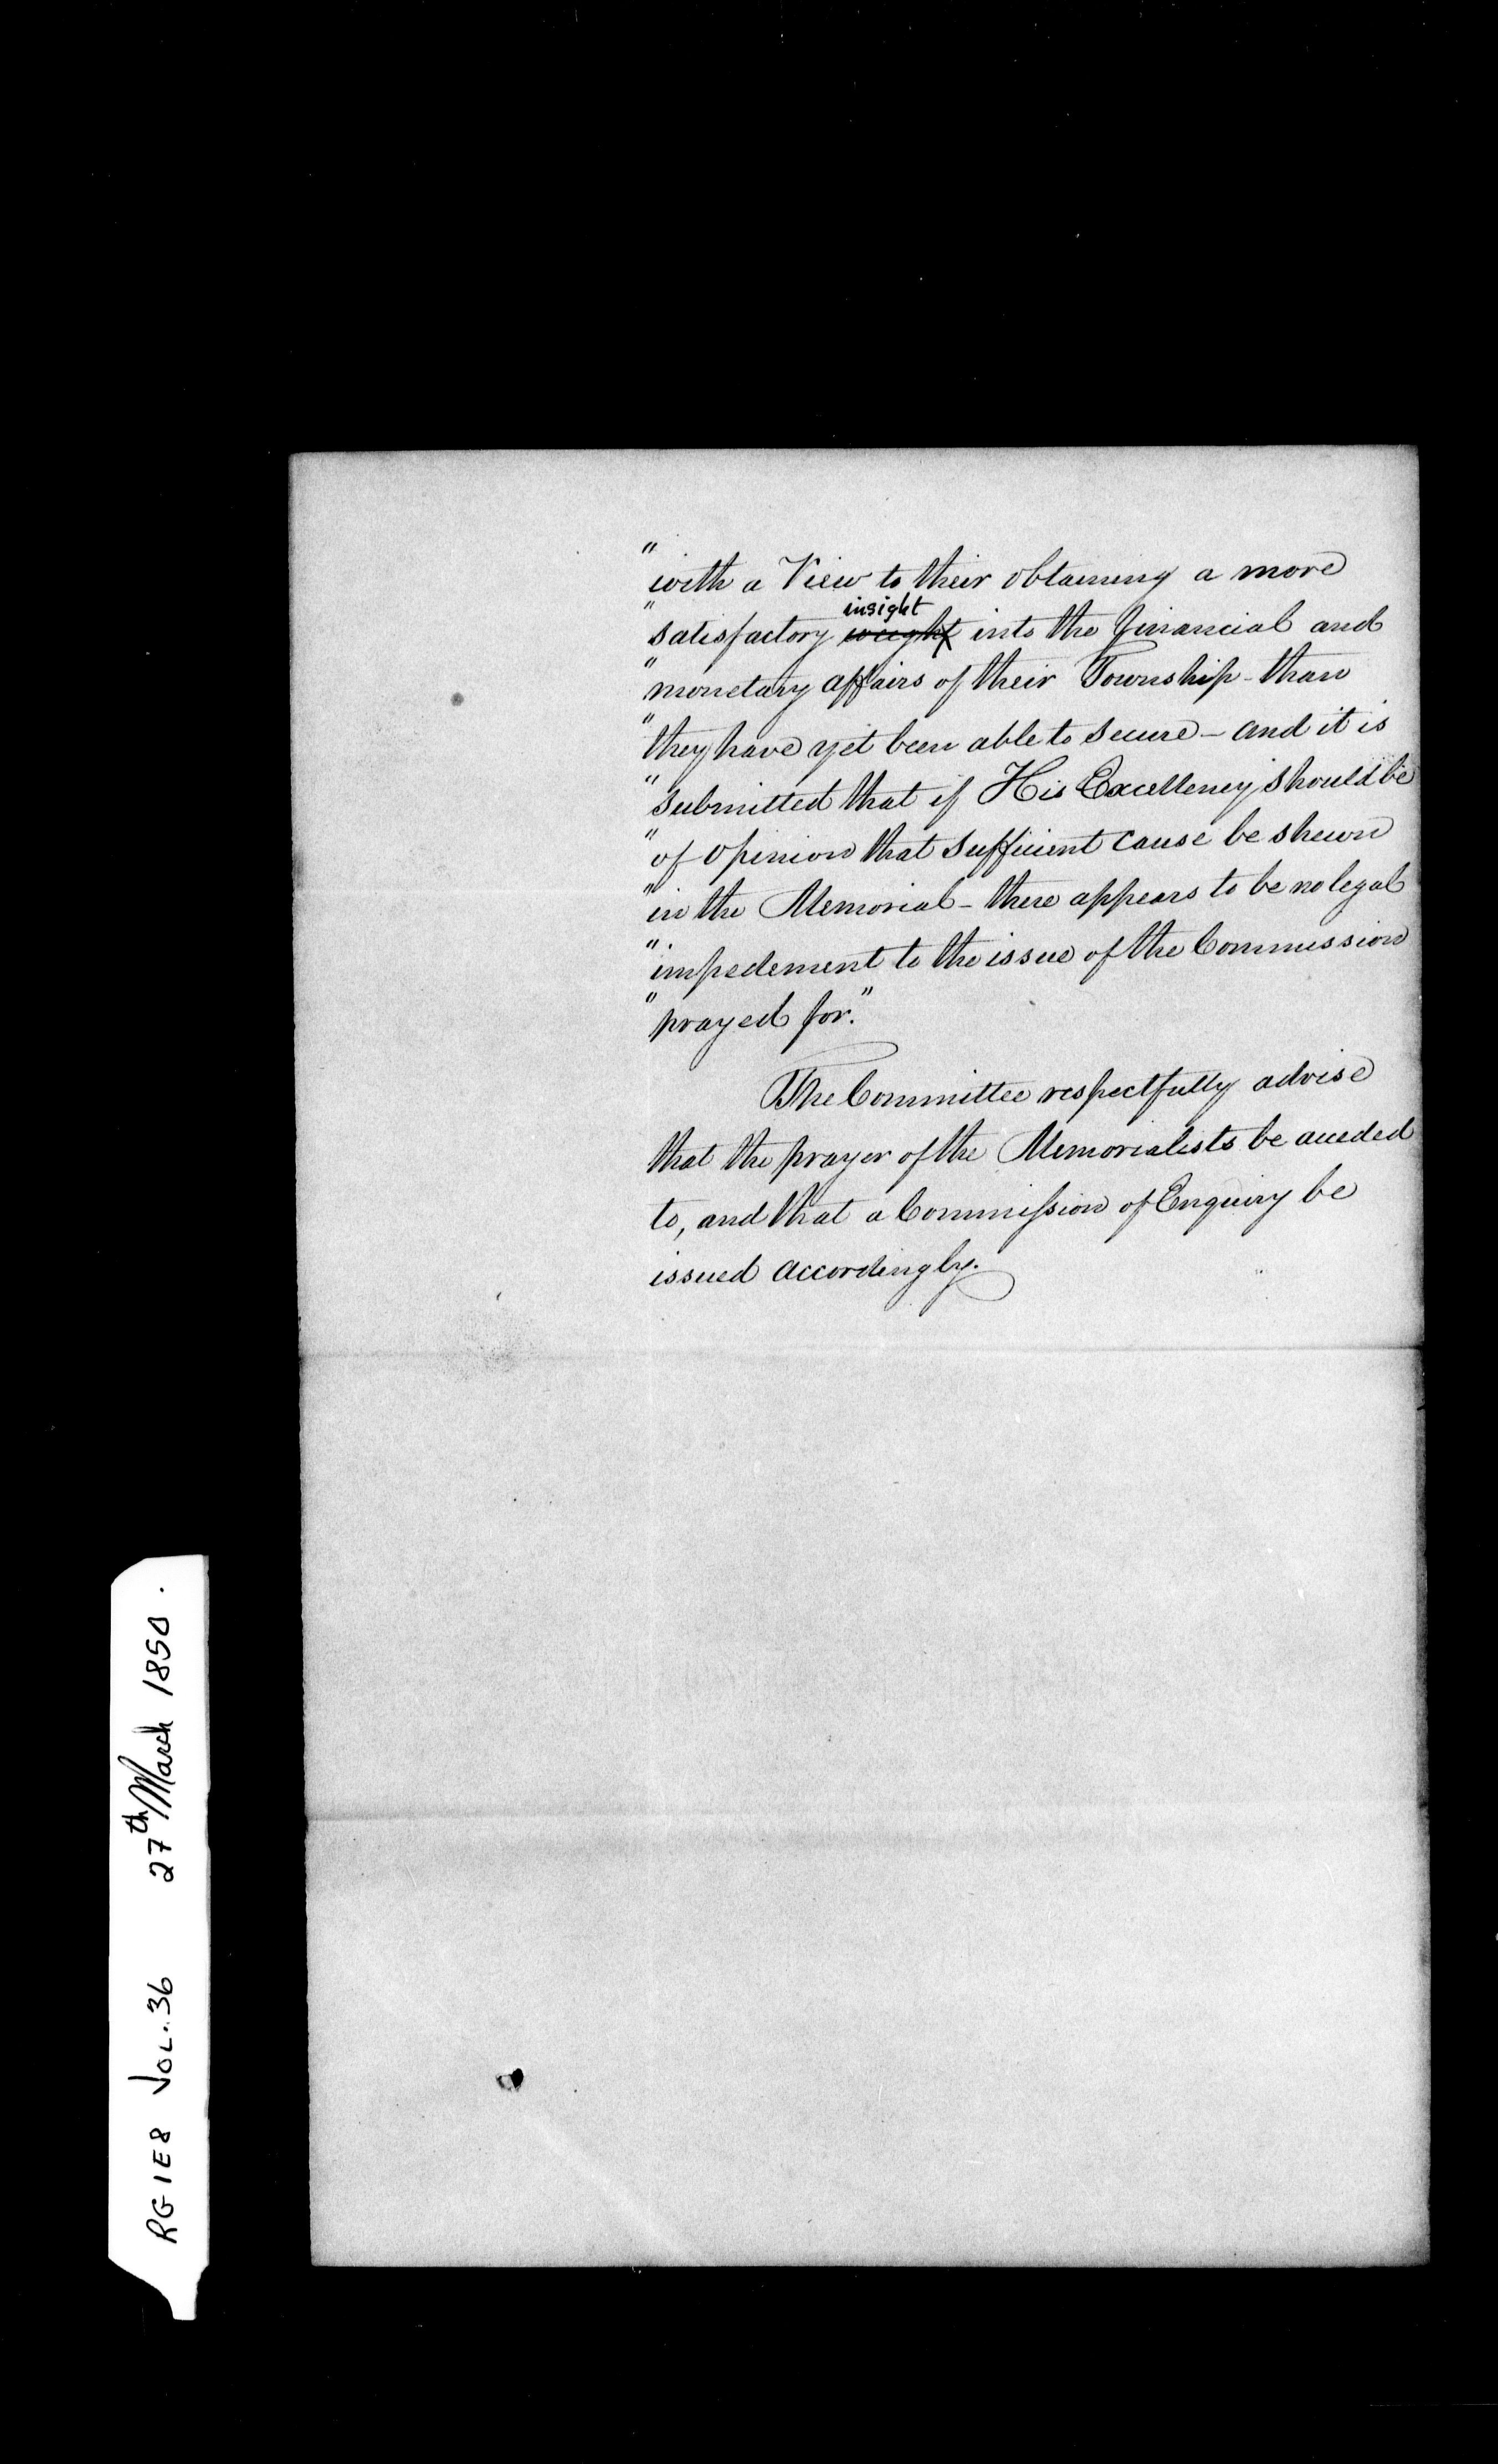 "with a View to their obtaining a more
insight
"satisfactory weight into the financial and
"monetary affairs of their Township - than
"they have yet been able to secure - and it is
"submitted that if His Excellency should be
"of opinion that sufficient cause be shewn
"in the Memorial - there appears to be no legal
"impediment to the issue of the Commission
"prayed for."
The Committee respectfully advise
that the prayer of the Memorialists be acceded
to, and that a Commission of Enquiry be
issued accordingly.
RG 1E8 VOL. 36 27th March 1850.